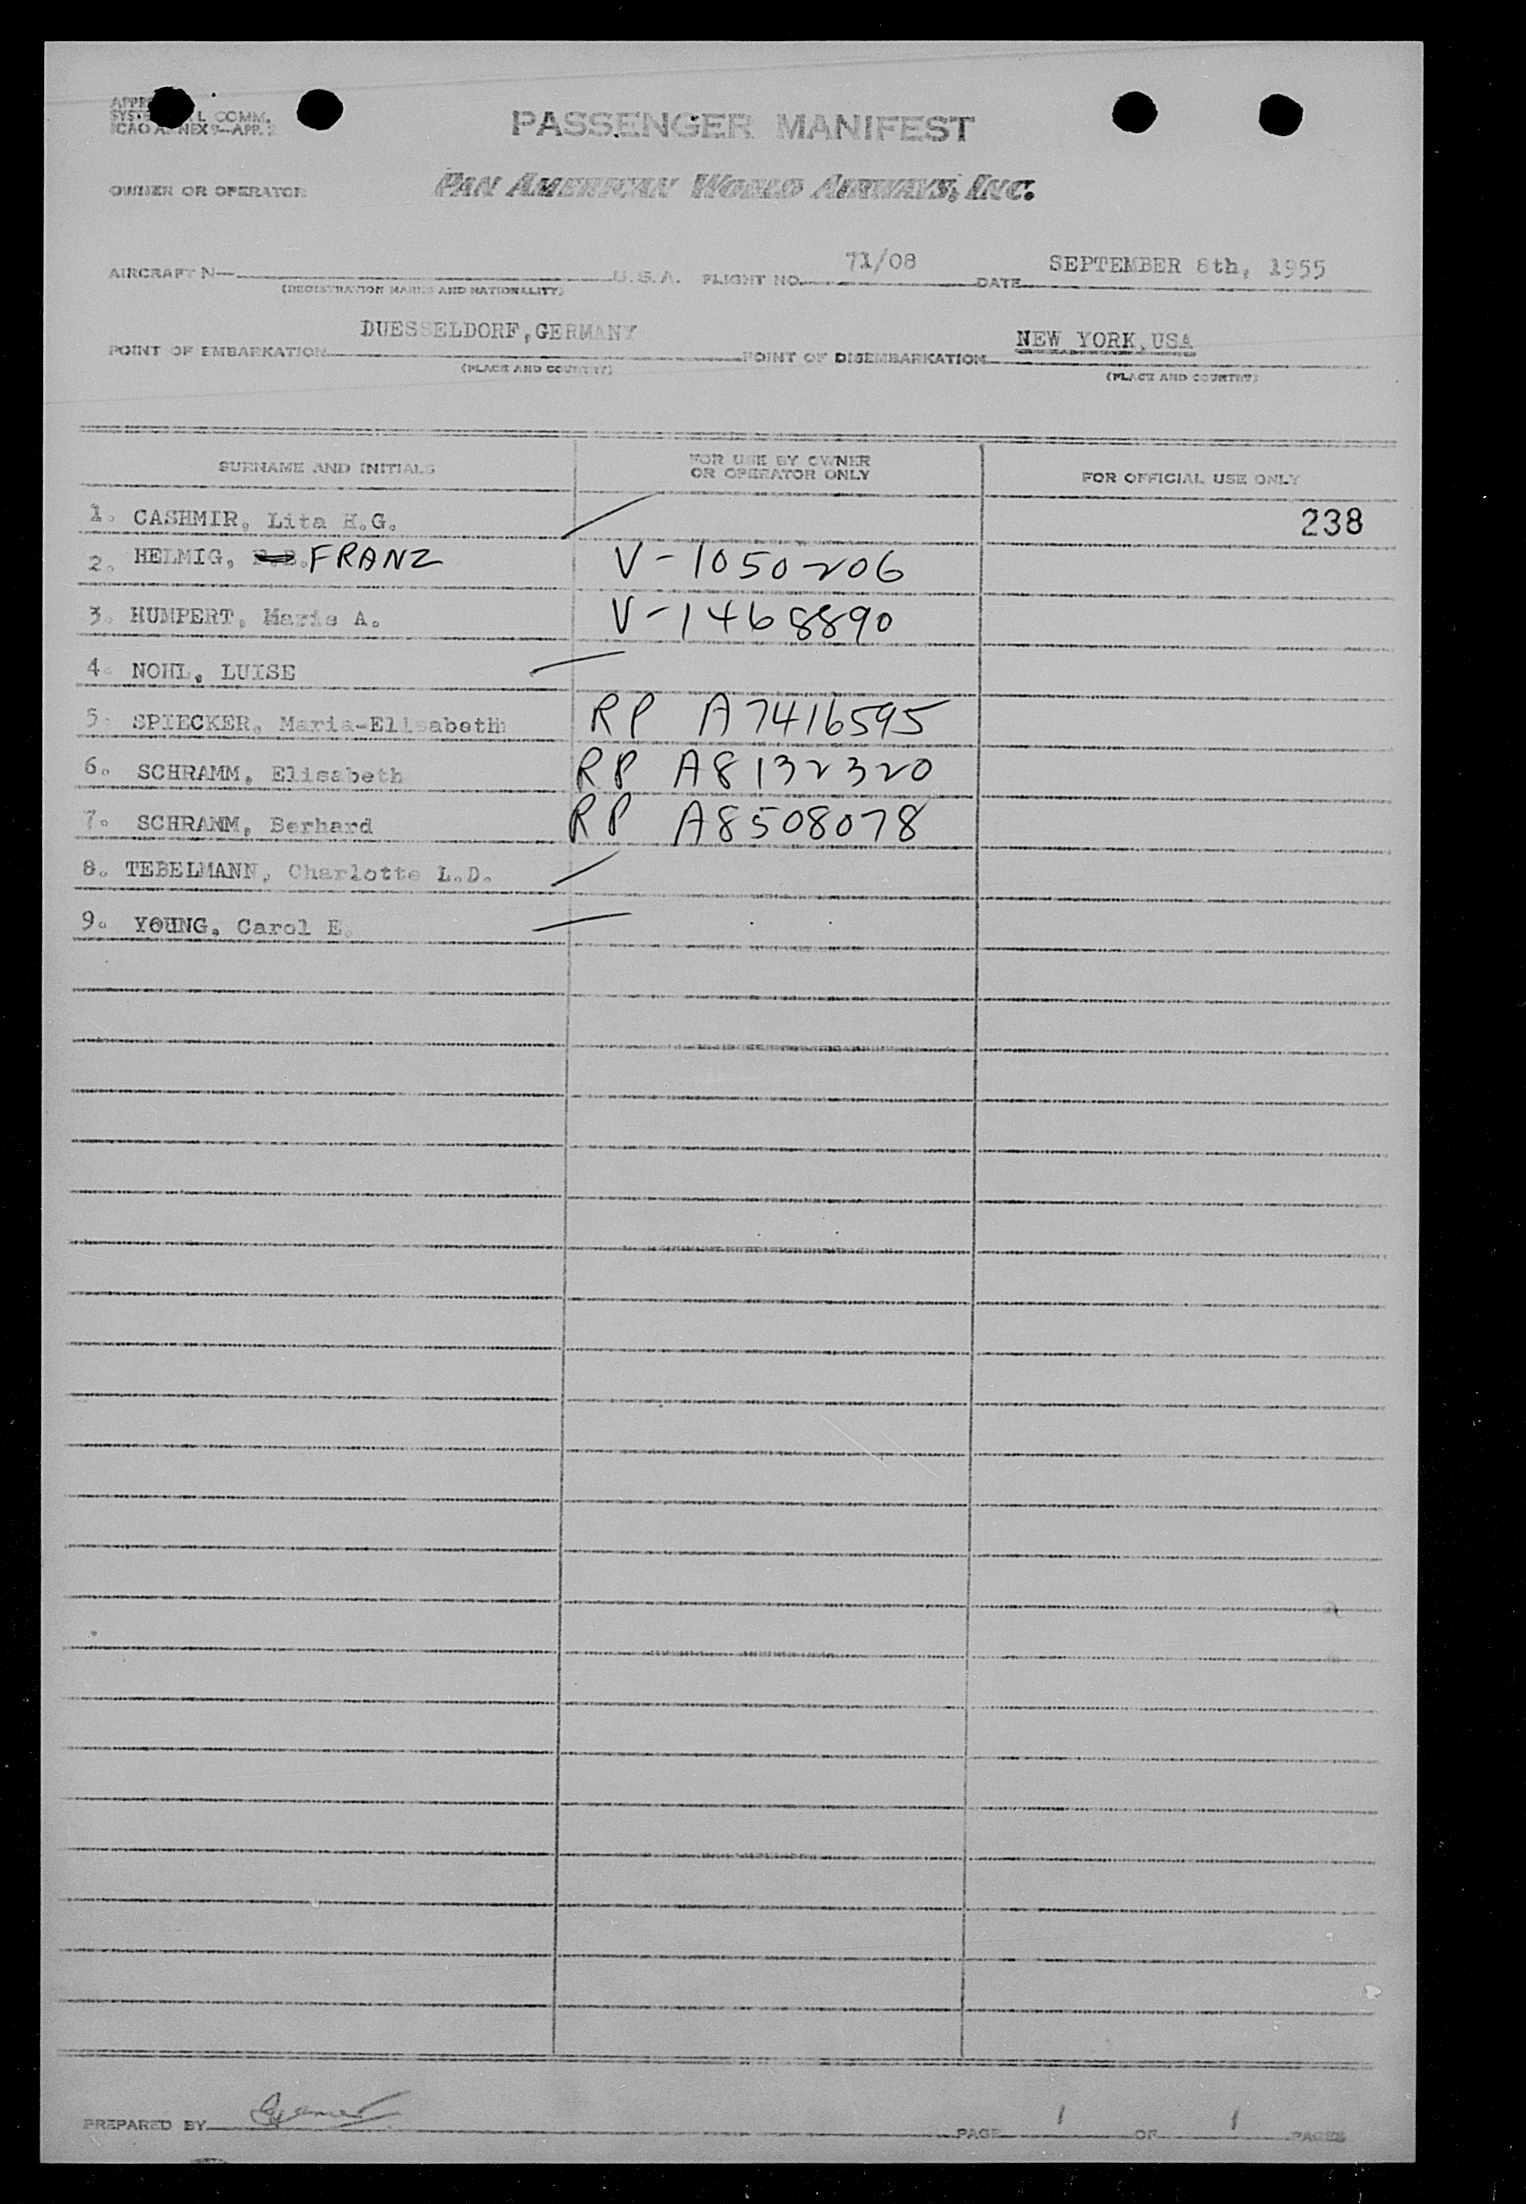 PASSENGER MANIFEST
COMM.
ICAO ANNEX 9-APP. 2
OWNER OR OPERATOR PAN AMERICAN WORLD AIRWAYS, INC.
AIRCRAFT N- U.S.A. FLIGHT NO. 71/08 DATE SEPTEMBER 8th, 1955
(REGISTRATION MARKS AND NATIONALITY)
POINT OF EMBARKATION DUESSELDORF,GERMANY POINT OF DISEMBARKATION NEW YORK,USA
(PLACE AND COUNTRY) (PLACE AND COUNTRY)
SURNAME AND INITIALS FOR USE BY OWNER OR OPERATOR ONLY FOR OFFICIAL USE ONLY
1. CASHMIR, Lita H.G. 238
2. HELMIG, FRANZ V-1050206
3. HUMPERT, Marie A. V-1468890
4. NOHL, LUISE
5. SPIECKER, Maria-Elisabeth RP A7416595
6. SCHRAMM, Elisabeth RP A8132320
7. SCHRAMM, Berhard RP A8508078
8. TEBELMANN, Charlotte L.D.
9. YOUNG, Carol E.
PREPARED BY PAGE 1 OF 1 PAGES